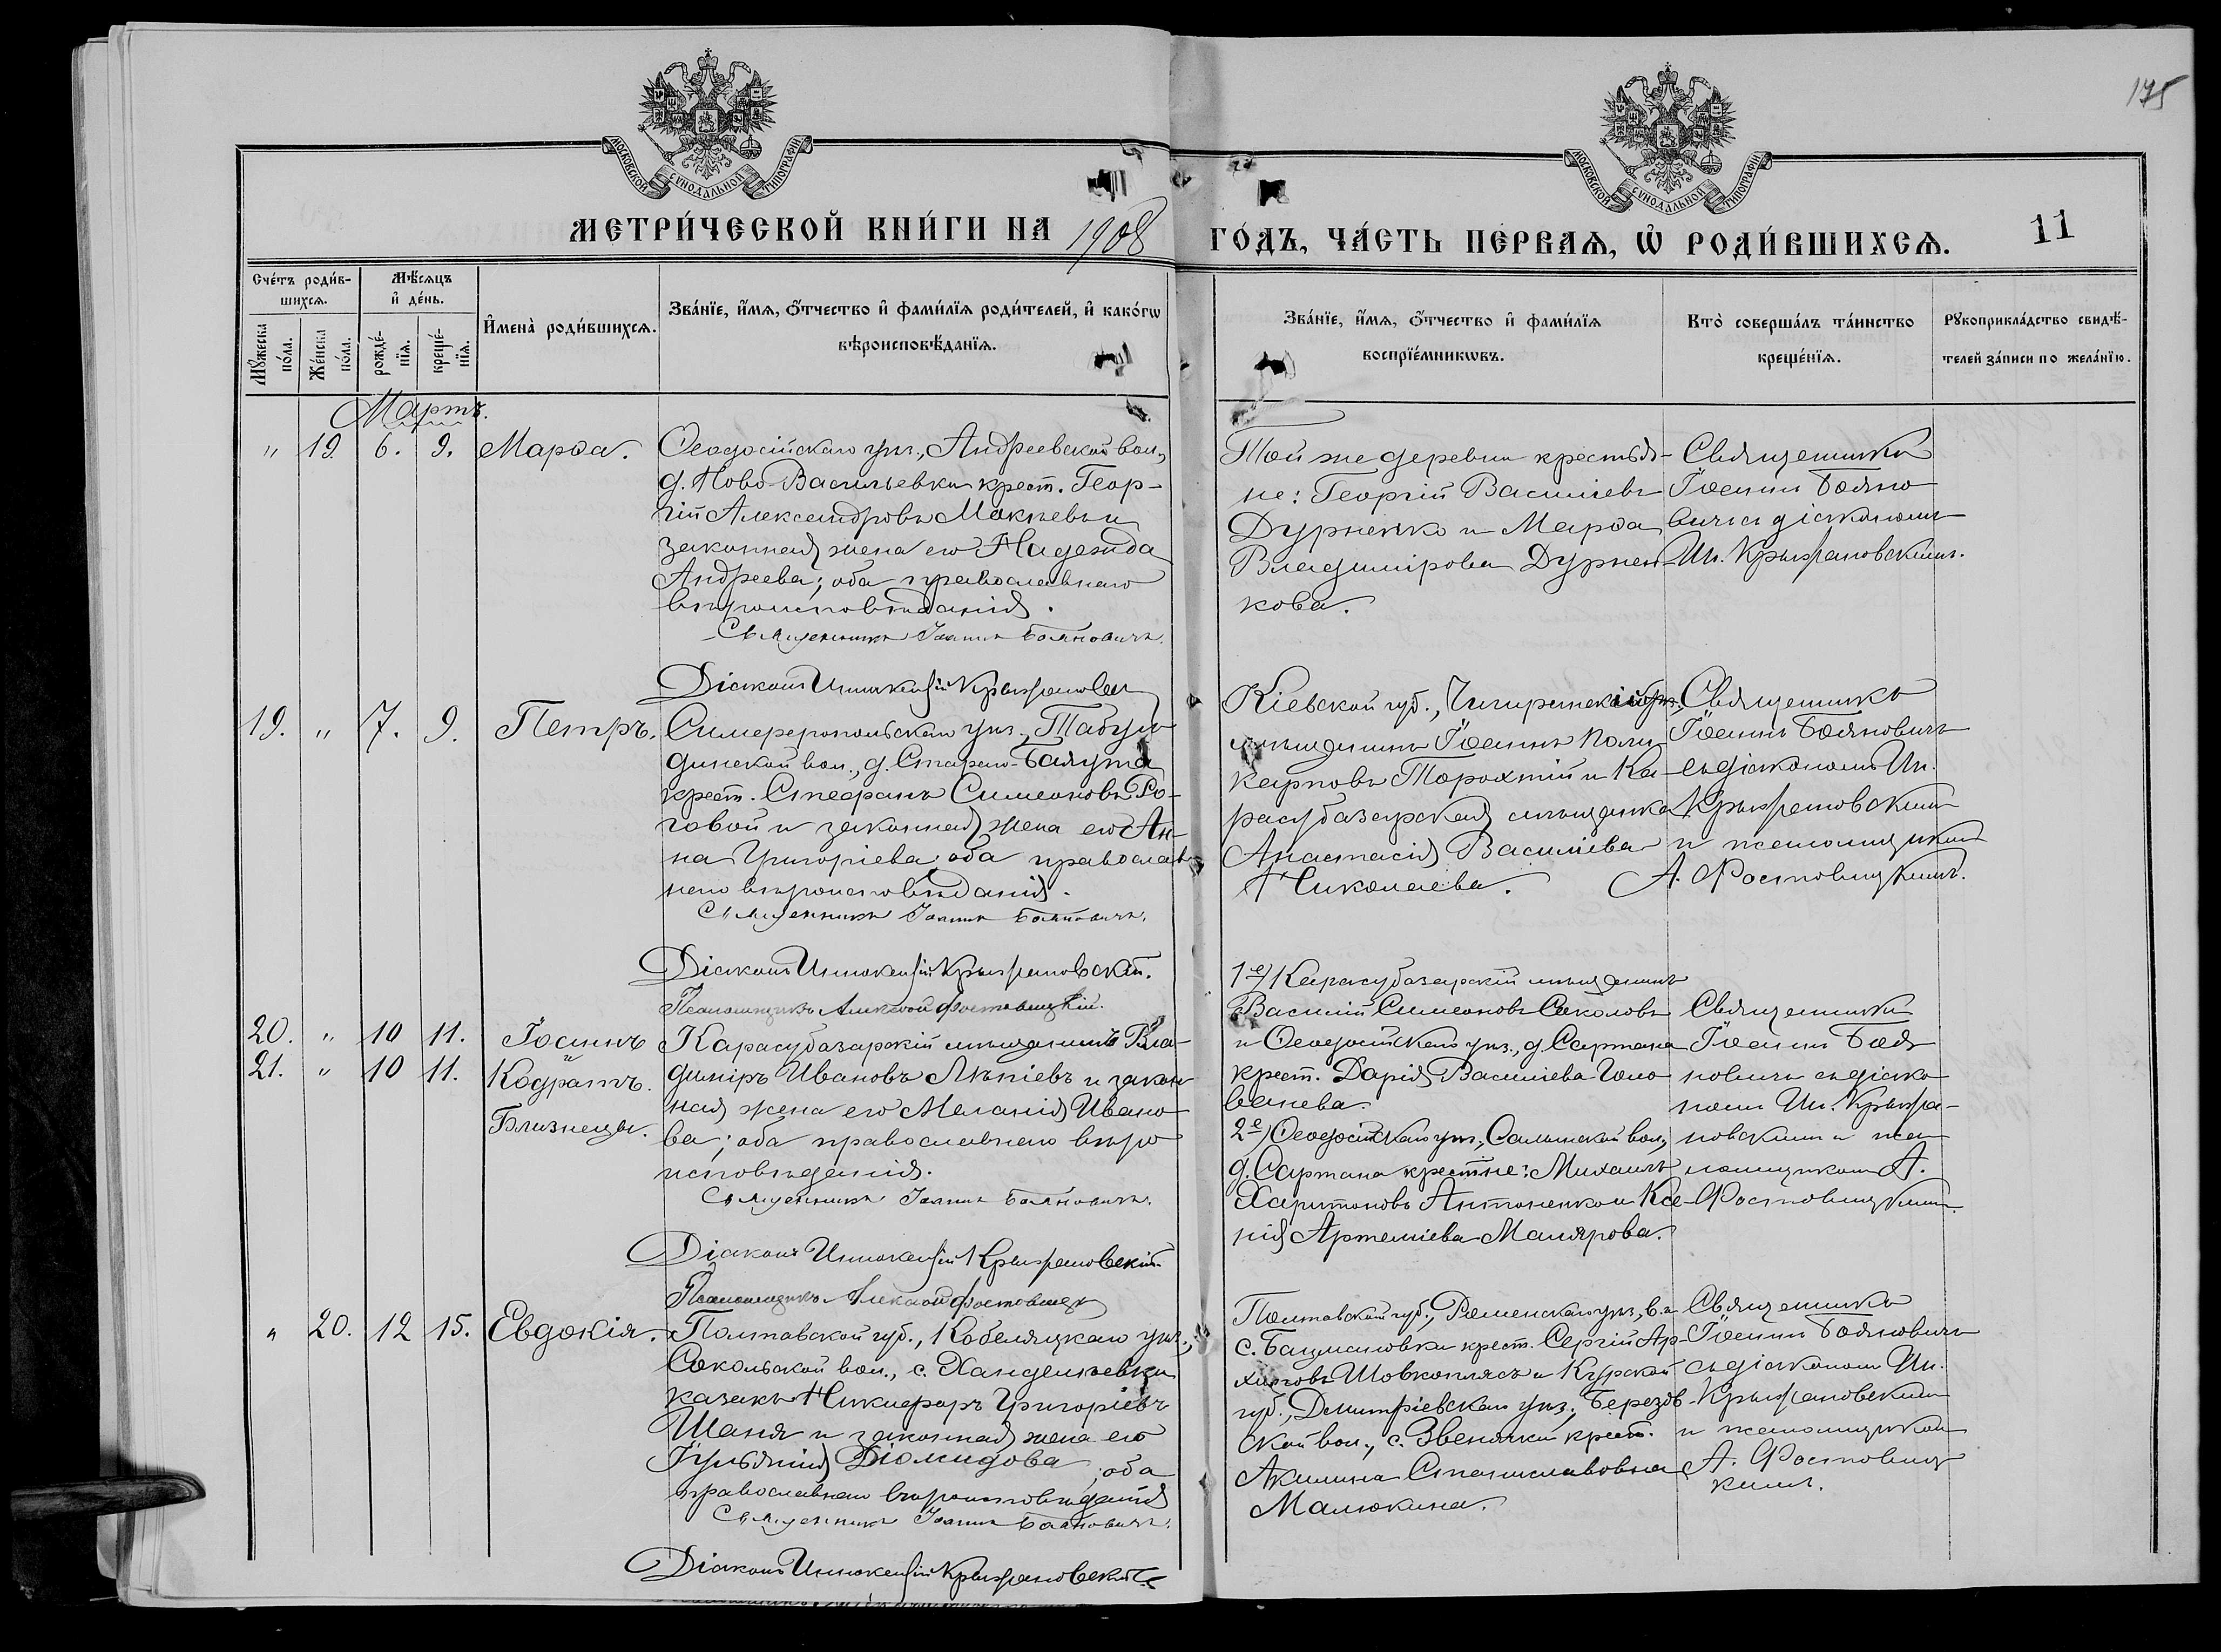 175
МОСКОВСКОЙ СѴНОДАЛЬНОЙ ТИПОГРАФІИ
МОСКОВСКОЙ СѴНОДАЛЬНОЙ ТИПОГРАФІИ
МЕТРИ́ЧЕСКОЙ КНИ́ГИ НА 1908 ГО́ДЪ, ЧА́СТЬ ПЕ́РВАѦ, Ѡ҆ РОДИ́ВШИХСѦ.
11
Сче́тъ роди́в-
шихсѧ.
Мѣ́сѧцъ
и҆ де́нь.
Мꙋ́жеска
по́ла.
Же́нска
по́ла.
рожде́-
нїѧ.
креще́-
нїѧ.
И҆мена̀ роди́вшихсѧ.
Зва́нїе, и҆́мѧ, ѻ҆́тчество и҆ фами́лїѧ роди́телей, и҆ како́гѡ
вѣроисповѣ́данїѧ.
Зва́нїе, и҆́мѧ, ѻ҆́тчество и҆ фами́лїѧ
воспрїе́мникѡвъ.
Кто̀ соверша́лъ та́инство
креще́нїѧ.
Рꙋкоприкла́дство свидѣ́-
телей за́писи по жела́нїю.
Мартъ.
" 19. 6. 9. Марѳа.
Ѳеодосійскаго уѣз., Андреевской вол.,
д. Ново-Васильевки крест. Геор-
гій Александровъ Мокѣевъ и
законная жена его Надежда
Андреева; оба православнаго
вѣроисповѣданія.
Священникъ Іоаннъ Бояновичъ.
Діаконъ Иннокентій
Той же деревни крестья-
не: Георгій Василіевъ
Дурненко и Марѳа
Владимірова Дурнен-
кова.
Священникъ
Іоаннъ Бояно
вичъ съ діакономъ
Ин.
19. " 7. 9. Петръ.
Симферопольскаго уѣз., Табул-
динской вол., д. Старой-Бояута
крест. Стефанъ Симеоновъ Ро-
говой и законная жена его Ан-
на Григоріева; оба православ-
наго вѣроисповѣданія.
Священникъ Іоаннъ Бояновичъ.
Діаконъ Иннокентій
Псаломщикъ Алексѣй Фостовицкій.
Кіевской губ., Чигиринскій уѣз.,
мѣщанинъ Іоаннъ Поли-
карповъ Торохтій и Ка-
расубазарская мѣщанка
Анастасія Василіева
Николаева.
Священникъ
Іоаннъ Бояновичъ
съ діакономъ Ин.
и псаломщикомъ
А. Фостовицкимъ.
20. " 10 11. Іоаннъ
21. " 10 11. Кодратъ.
Близнецы.
Карасубазарскій мѣщанинъ Вла-
диміръ Ивановъ Лѣпіевъ и закон-
ная жена его Меланія Ивано-
ва; оба православнаго вѣро
исповѣданія.
Священникъ Іоаннъ Бояновичъ.
Діаконъ Иннокентій
Псаломщикъ Алексѣй
1-е) Карасубазарскій мѣщанинъ
Василій Симеоновъ Соколовъ
и Ѳеодосійскаго уѣз., д. Сартана
крест. Дарія Василіева Голо
ванева.
2-е) Ѳеодосійскаго уѣз., Салынской вол.,
д. Сартана крестьне: Михаилъ
Харитоновъ Антоненко и Ксе-
нія Артеміева Малярова.
Священникъ
Іоаннъ Боя
новичъ съ діако
номъ Ин.
и пса
ломщикомъ А.
Фостовицкимъ.
" 20. 12 15. Евдокія.
Полтавской губ., Кобеляцкаго уѣз.,
Сокольской вол., с. Ханделѣевки
казакъ Никифоръ Григоріевъ
Шаня и законная жена его
Іуліанія Діомидова; оба
православнаго вѣроисповѣданія
Священникъ Іоаннъ Бояновичъ.
Діаконъ Иннокентій
Полтавской губ., Роменскаго уѣз.,
с. Бацмановки крест. Сергій Ар-
хиповъ Шовкоплясъ и Курской
губ., Дмитріевскаго уѣз., Березов-
ской вол., с. Звенячки крест.
Акилина Станиславовна
Малюкина.
Священникъ
Іоаннъ Бояновичъ
съ діакономъ Ин.
и псаломщикомъ
А. Фостовиц
кимъ.